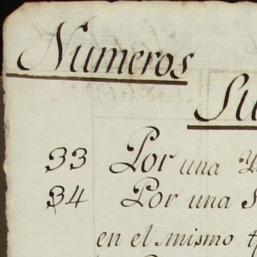 Numeros
Su
33 Por una Y
34 Por una S
en el mismo t